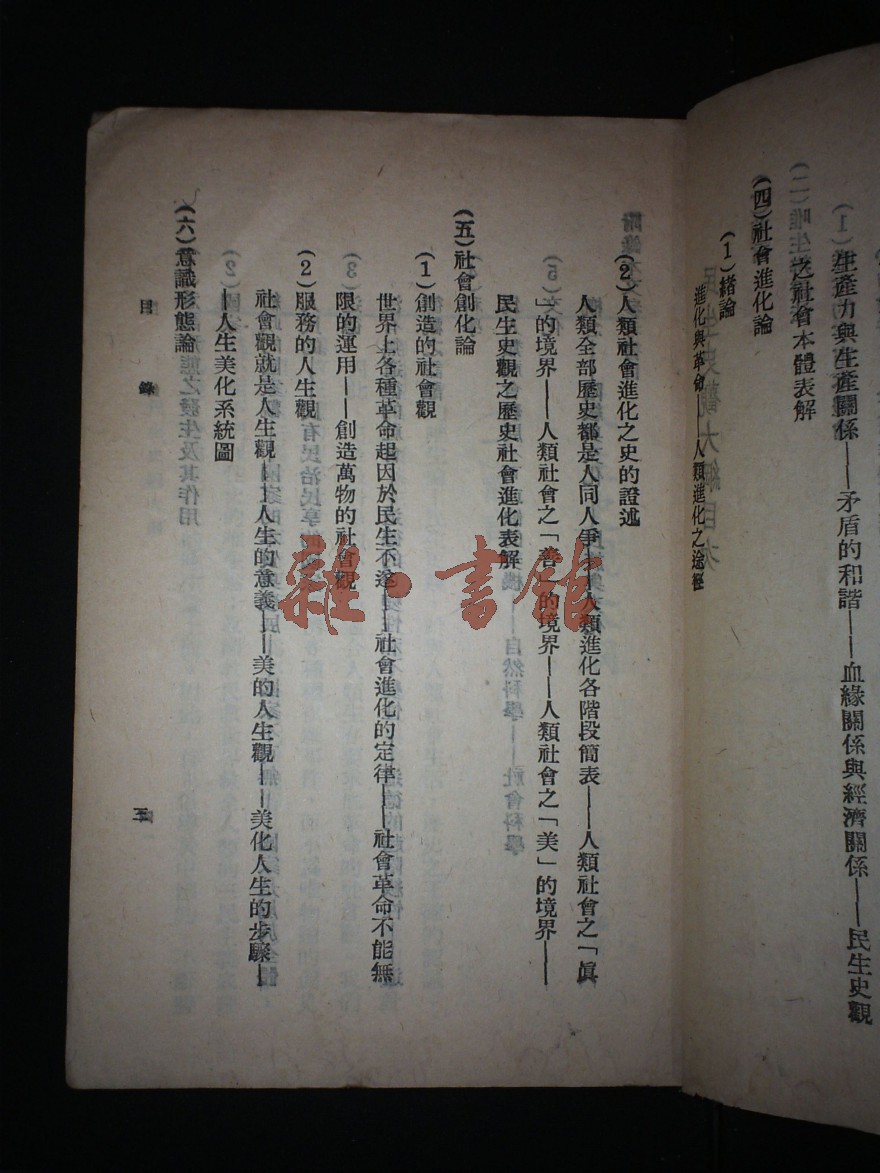 (1)生產力與生產關係——矛盾的和諧——血緣關係與經濟關係——民生史觀
之社會本體表解
(四)社會進化論
(1)緒論
進化與革命——人類進化之途徑
(2)人類社會進化之史的證述
人類全部歷史都是人同人爭——人類進化各階段簡表——人類社會之「眞
」的境界——人類社會之「善」的境界——人類社會之「美」的境界——
民生史觀之歷史社會進化表解
(五)社會創化論
(1)創造的社會觀
世界上各種革命起因於民生不遂——社會進化的定律——社會革命不能無
限的運用——創造萬物的社會觀
(2)服務的人生觀
社會觀就是人生觀——人生的意義——美的人生觀——美化人生的步驟—
—人生美化系統圖
(六)意識形態論
目錄
三
雜·書館